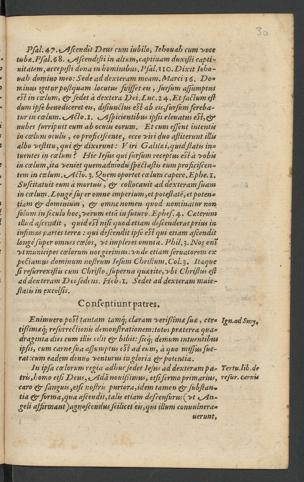 30
Psal. 47. Ascendit Deus cum iubilo, Iehouah cum voce
tubæ. Psal. 68. Ascendisti in altum, captiuam duxisti capti-
uitatem, accepisti dona in hominibus. Psal. 110. Dixit Ieho-
uah domino meo: Sede ad dexteram meam. Marci 16. Do-
minus igitur postquam locutus fuisset eis, sursum assumptus
est in cælum, & sedet à dextera Dei. Luc. 24. Et factum est
dum ipse benediceret eis, disiunctus est ab eis, sursum fereba-
tur in cælum. Acto. 1. Aspicientibus ipsis eleuatus est, &
nubes surripuit eum ab oculis eorum. Et cum essent intentis
in cælum oculis, eo proficiscente, ecce viri duo astiterunt illis
albo vestitu, qui & dixerunt: Viri Galilæi, quid statis in-
tuentes in cælum? Hic Iesus qui sursum receptus est à vobis
in cælum, ita veniet quemadmodum spectastis eum proficiscen-
tem in cælum. Acto. 3. Quem oportet cælum capere. Ephe. 1.
Suscitauit eum à mortuis, & collocauit ad dexteram suam
in cælum. Longè super omne imperium, & potestatē, & poten-
tiam & dominium, & omne nomen quod nominatur non
solum in seculo hoc, verum etiā in futuro. Ephes. 4. Cæterum
illud ascendit, quid est nisi quod etiam descenderat prius in
infimas partes terræ: qui descendit ipse est qui etiam ascendit
longè super omnes cælos, vt impleret omnia. Phil. 3. Nos enī
vt municipes cælorum nos gerimus: vnde etiam seruatorem ex
pectamus dominum nostrum Iesum Christum. Col. 3. Itaque
si resurrexistis cum Christo, superna quærite, vbi Christus est
ad dexteram Dei sedens. Heb. 1. Sedet ad dexteram maie-
statis in excelsis.
Consentiunt patres.
Enimuero post tantam tamq; claram verissimæ suæ, cer-
tissimæq; resurrectionis demonstrationem: totos præterea qua-
draginta dies cum illis edit & bibit: sicq; demum intuentibus
ipsis, cum carne sua assumptus est ad eum, à quo missus fue-
rat: cum eadem denuo venturus in gloria & potentia.
Ign. ad Smy.
In ipsa cælorum regia adhuc sedet Iesus ad dexteram pa-
tris, homo etsi Deus, Adā nouissimus, etsi sermo primarius,
caro & sanguis, etsi nostris puriora, idem tamen & substan-
tia & forma, qua ascendit, talis etiam descensurus (vt An-
geli affirmant) agnoscendus scilicet eis, qui illum conuulnera-
uerunt,
Tertu. lib. de
resur. carnis